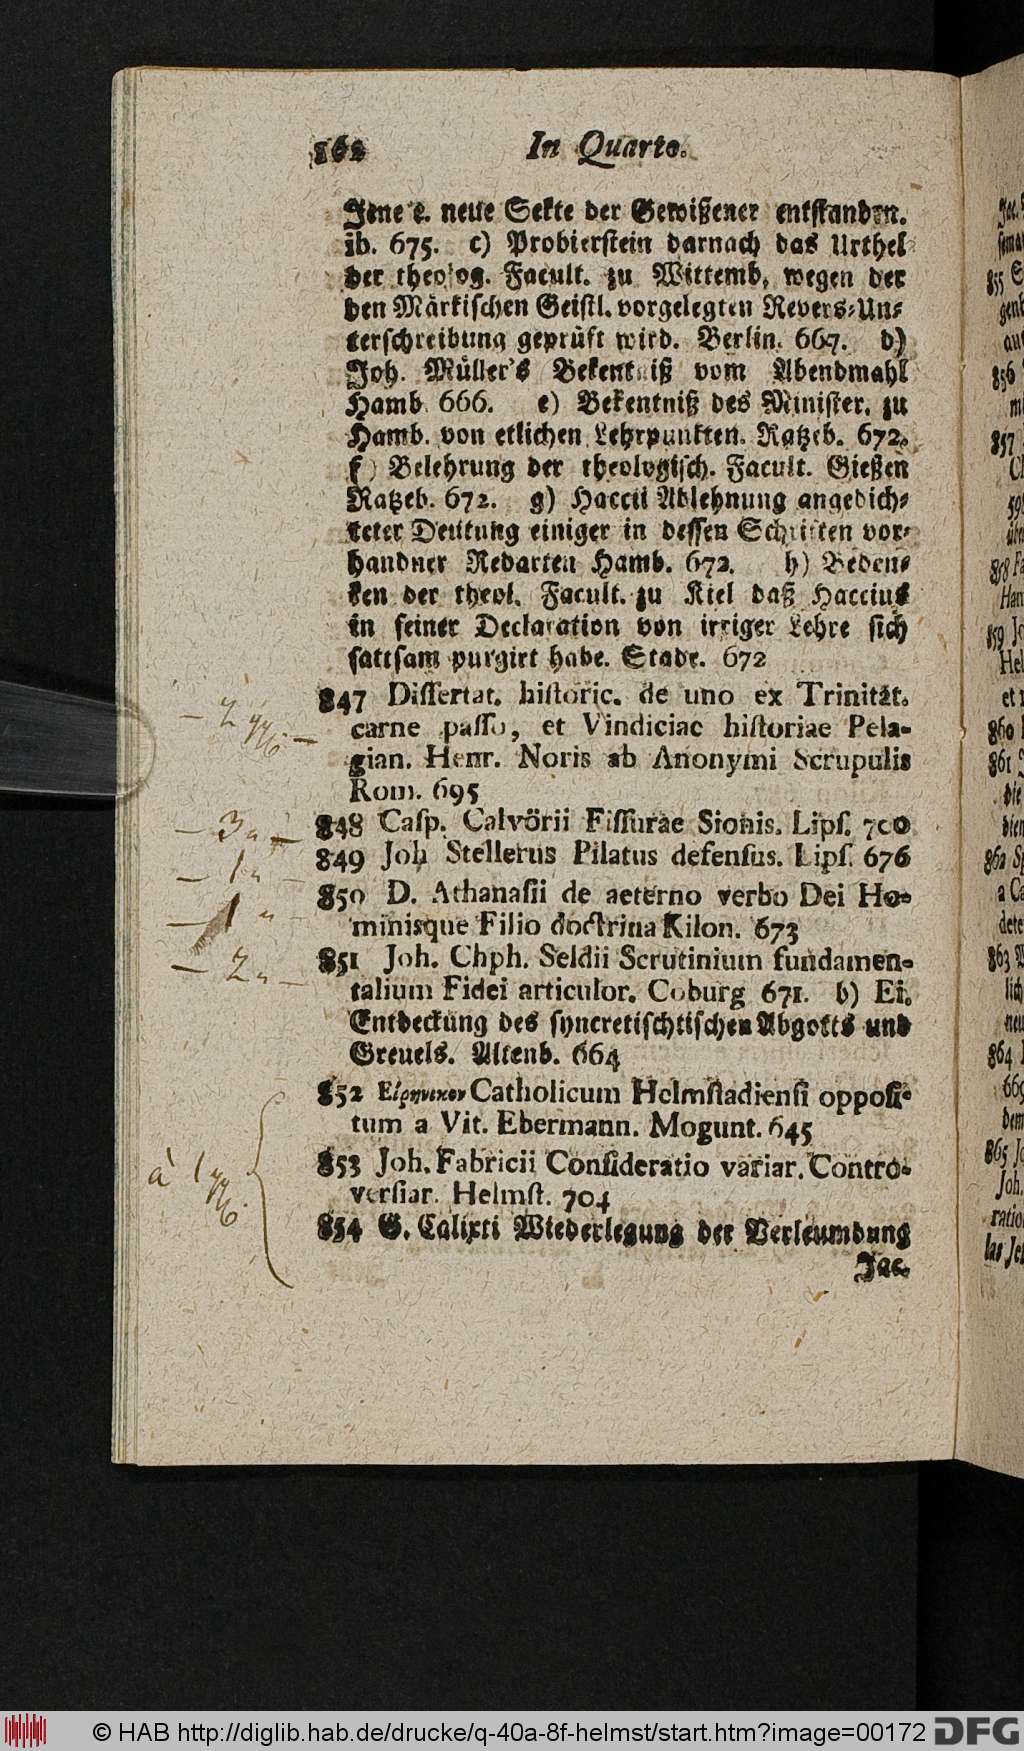 862 In Quarto.
Jene e. neue Sekte der Gewißener entstanden.
ib. 675. c) Probierstein darnach das Urthel
der theolog. Facult. zu Wittemb. wegen der
den Märkischen Geistl. vorgelegten Revers-Un-
terschreibung geprüft wird. Berlin. 667. d)
Joh. Müller's Bekentniß vom Abendmahl
Hamb. 666. e) Bekentniß des Minister. zu
Hamb. von etlichen Lehrpunkten. Ratzeb. 672.
f) Belehrung der theologisch. Facult. Gießen
Ratzeb. 672. g) Haccii Ablehnung angedich-
teter Deutung einiger in dessen Schriften vor-
handner Redarten Hamb. 672. h) Beden-
ken der theol. Facult. zu Kiel daß Haccius
in seiner Declaration von irriger Lehre sich
sattsam purgirt habe. Stade. 672
847 Dissertat. historic. de uno ex Trinität.
carne passo, et Vindiciae historiae Pela-
gian. Henr. Noris ab Anonymi Scrupulis
Rom. 695
848 Casp. Calvörii Fissurae Sionis. Lips. 700
849 Joh Stellerus Pilatus defensus. Lips. 676
850 D. Athanasii de aeterno verbo Dei Ho-
minisque Filio doctrina Kilon. 673
851 Joh. Chph. Seldii Scrutinium fundamen-
talium Fidei articulor. Coburg 671. b) Ei.
Entdeckung des syncretischtischen Abgotts und
Greuels. Altenb. 664
852 Εἰρηνικον Catholicum Helmstadiensi opposi-
tum a Vit. Ebermann. Mogunt. 645
853 Joh. Fabricii Consideratio variar. Contro-
versiar. Helmst. 704
854 G. Calixti Wiederlegung der Verleumdung
Jac.
– 2
– 3 „ –
– 1 „
– 1 „ –
– 2 „ –
à 1
855
856
857
858
859 Jo
Hel
860
861
862
863
864
865 Jo
Joh.
© HAB http://diglib.hab.de/drucke/q-40a-8f-helmst/start.htm?image=00172 DFG